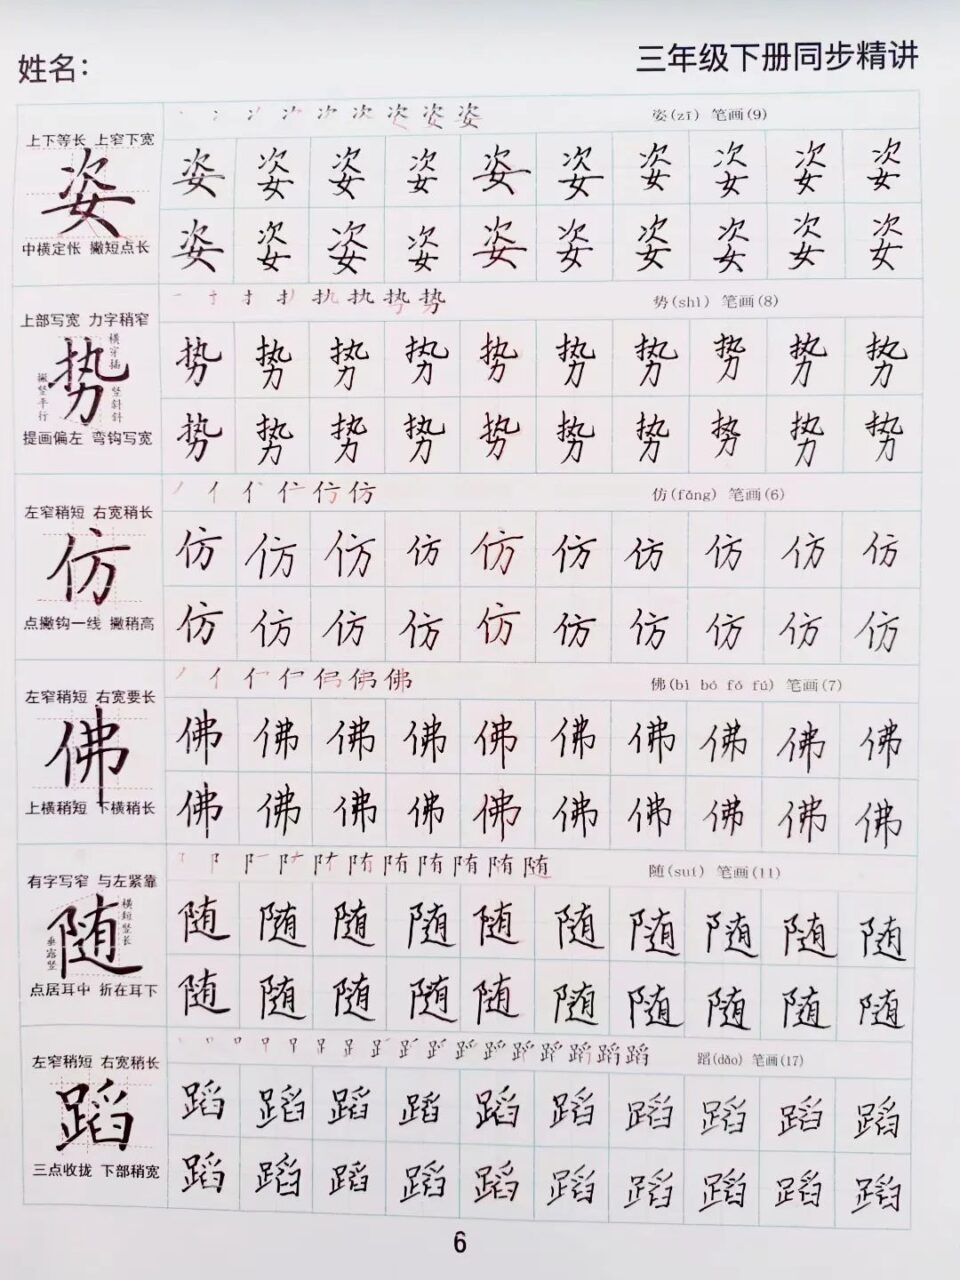 姓名：
三年级下册同步精讲
姿(zī) 笔画(9)
上下等长 上窄下宽
姿
中横定怅 撇短点长
姿 姿 姿 姿 姿 姿 姿 姿 姿 姿
姿 姿 姿 姿 姿 姿 姿 姿 姿 姿
势(shì) 笔画(8)
上部写宽 力字稍窄
势
提画偏左 弯钩写宽
撇竖平行
竖斜斜
势 势 势 势 势 势 势 势 势 势
势 势 势 势 势 势 势 势 势 势
仿(fǎng) 笔画(6)
左窄稍短 右宽稍长
仿
点撇钩一线 撇稍高
仿 仿 仿 仿 仿 仿 仿 仿 仿 仿
仿 仿 仿 仿 仿 仿 仿 仿 仿 仿
佛(bì bó fó fú) 笔画(7)
左窄稍短 右宽要长
佛
上横稍短 下横稍长
佛 佛 佛 佛 佛 佛 佛 佛 佛 佛
佛 佛 佛 佛 佛 佛 佛 佛 佛 佛
随(suí) 笔画(11)
有字写窄 与左紧靠
随
横短竖长
垂露竖
点居耳中 折在耳下
随 随 随 随 随 随 随 随 随 随
随 随 随 随 随 随 随 随 随 随
蹈(dǎo) 笔画(17)
左窄稍短 右宽稍长
蹈
三点收拢 下部稍宽
蹈 蹈 蹈 蹈 蹈 蹈 蹈 蹈 蹈 蹈
蹈 蹈 蹈 蹈 蹈 蹈 蹈 蹈 蹈 蹈
6